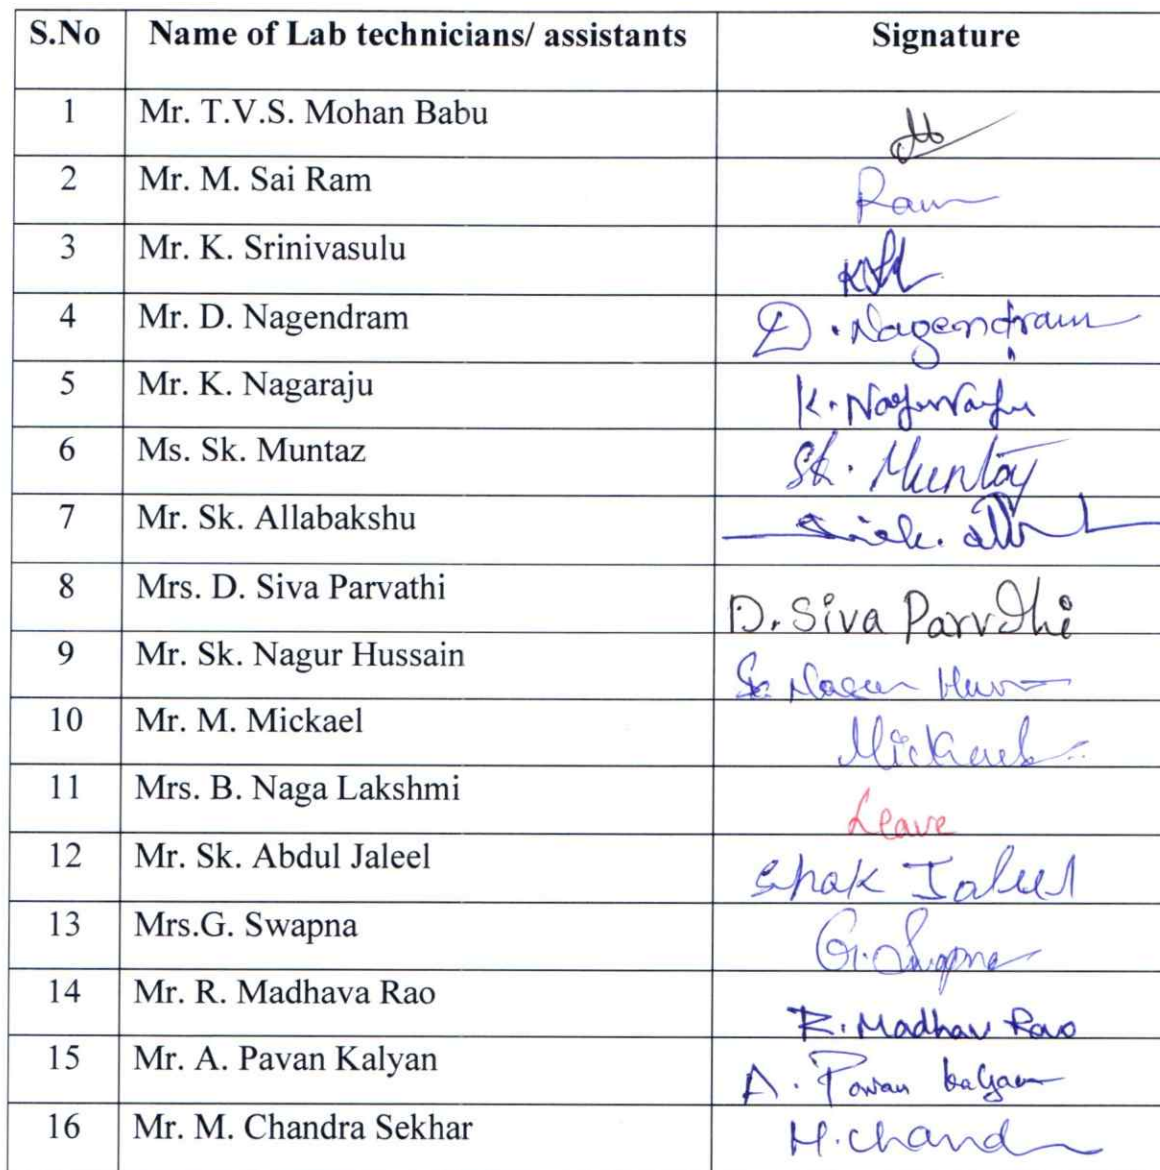 S.No Name of Lab technicians/ assistants Signature
1 Mr. T.V.S. Mohan Babu
2 Mr. M. Sai Ram Ram
3 Mr. K. Srinivasulu
4 Mr. D. Nagendram D. Nagendram
5 Mr. K. Nagaraju K. Nagaraju
6 Ms. Sk. Muntaz Sk. Muntaz
7 Mr. Sk. Allabakshu
8 Mrs. D. Siva Parvathi D. Siva Parvathi
9 Mr. Sk. Nagur Hussain
10 Mr. M. Mickael Mickael
11 Mrs. B. Naga Lakshmi Leave
12 Mr. Sk. Abdul Jaleel Shak Jaleel
13 Mrs.G. Swapna G. Swapna
14 Mr. R. Madhava Rao R. Madhav Rao
15 Mr. A. Pavan Kalyan A. Pavan kalyan
16 Mr. M. Chandra Sekhar M. chand